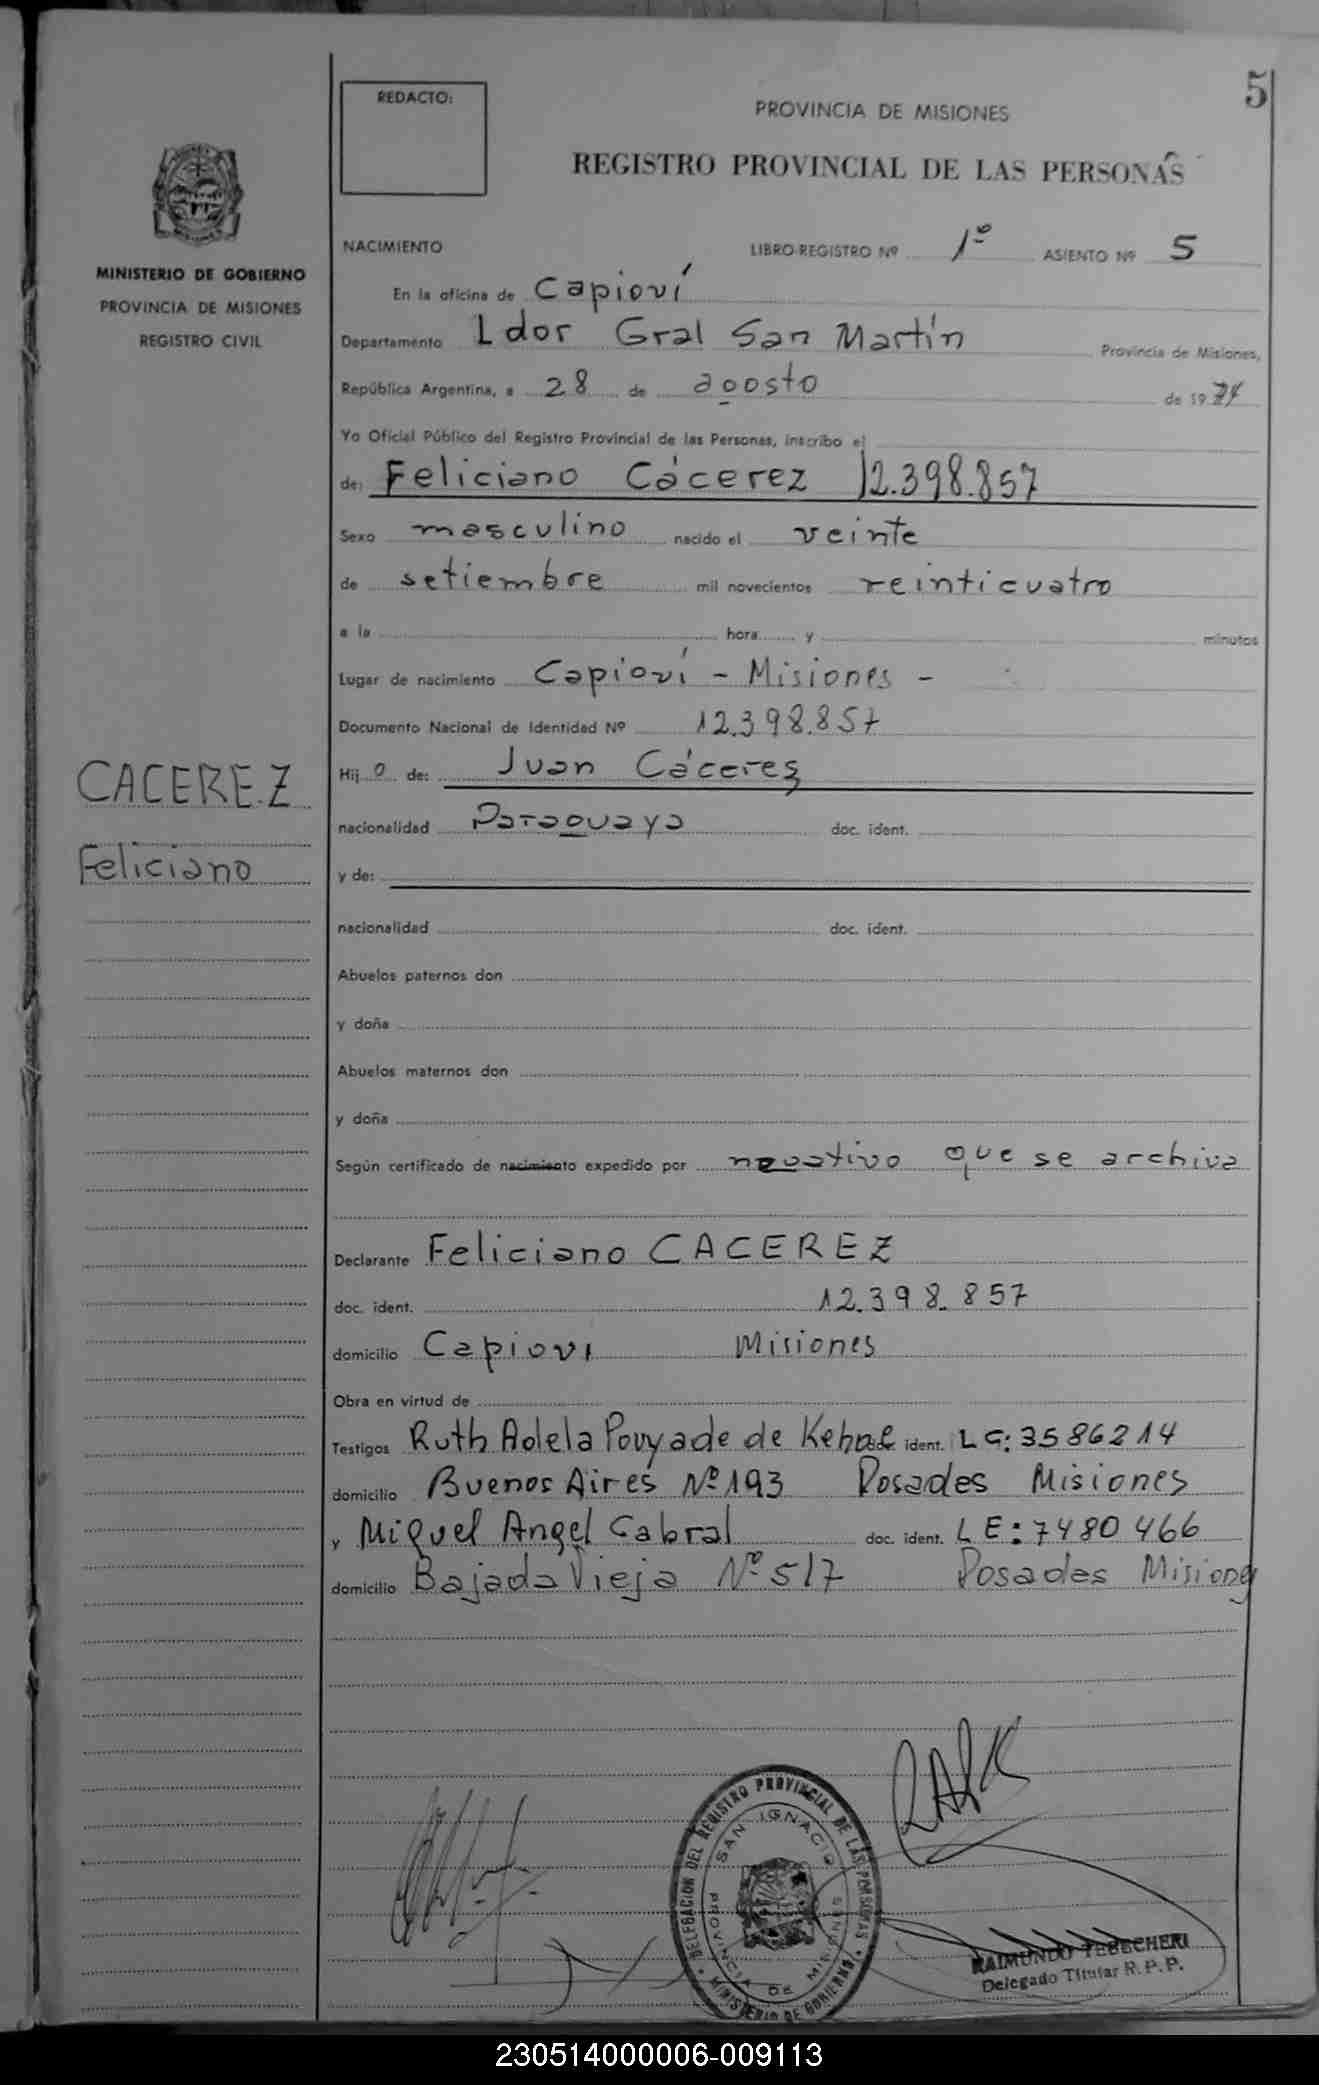 5
REDACTO:
PROVINCIA DE MISIONES
REGISTRO PROVINCIAL DE LAS PERSONAS
MINISTERIO DE GOBIERNO
PROVINCIA DE MISIONES
REGISTRO CIVIL
NACIMIENTO LIBRO-REGISTRO Nº 1º ASIENTO Nº 5
En la oficina de Capioví
Departamento Ldor Gral San Martín Provincia de Misiones,
República Argentina, a 28 de agosto de 1974
Yo Oficial Público del Registro Provincial de las Personas, inscribo el
de: Feliciano Cácerez 12.398.857
Sexo masculino nacido el veinte
de setiembre mil novecientos veinticuatro
a la hora y minutos
Lugar de nacimiento Capioví - Misiones -
Documento Nacional de Identidad Nº 12.398.857
Hij o de: Juan Cáceres
nacionalidad Paraguaya doc. ident.
CACEREZ
Feliciano
y de:
nacionalidad doc. ident.
Abuelos paternos don
y doña
Abuelos maternos don
y doña
Según certificado de nacimiento expedido por negativo que se archiva
Declarante Feliciano CACEREZ
doc. ident. 12.398.857
domicilio Capiovi Misiones
Obra en virtud de
Testigos Ruth Adela Pouyade de ident. LC: 3586214
domicilio Buenos Aires Nº 193 Posadas Misiones
y Miguel Angel Cabral doc. ident. LE: 7480466
domicilio Bajada Vieja Nº 517 Posadas Misiones
DELEGACION DEL REGISTRO PROVINCIAL DE LAS PERSONAS
SAN IGNACIO
PROVINCIA DE MISIONES
MINISTERIO DE GOBIERNO
RAIMUNDO TEBECHERI
Delegado Titular R. P. P.
230514000006-009113